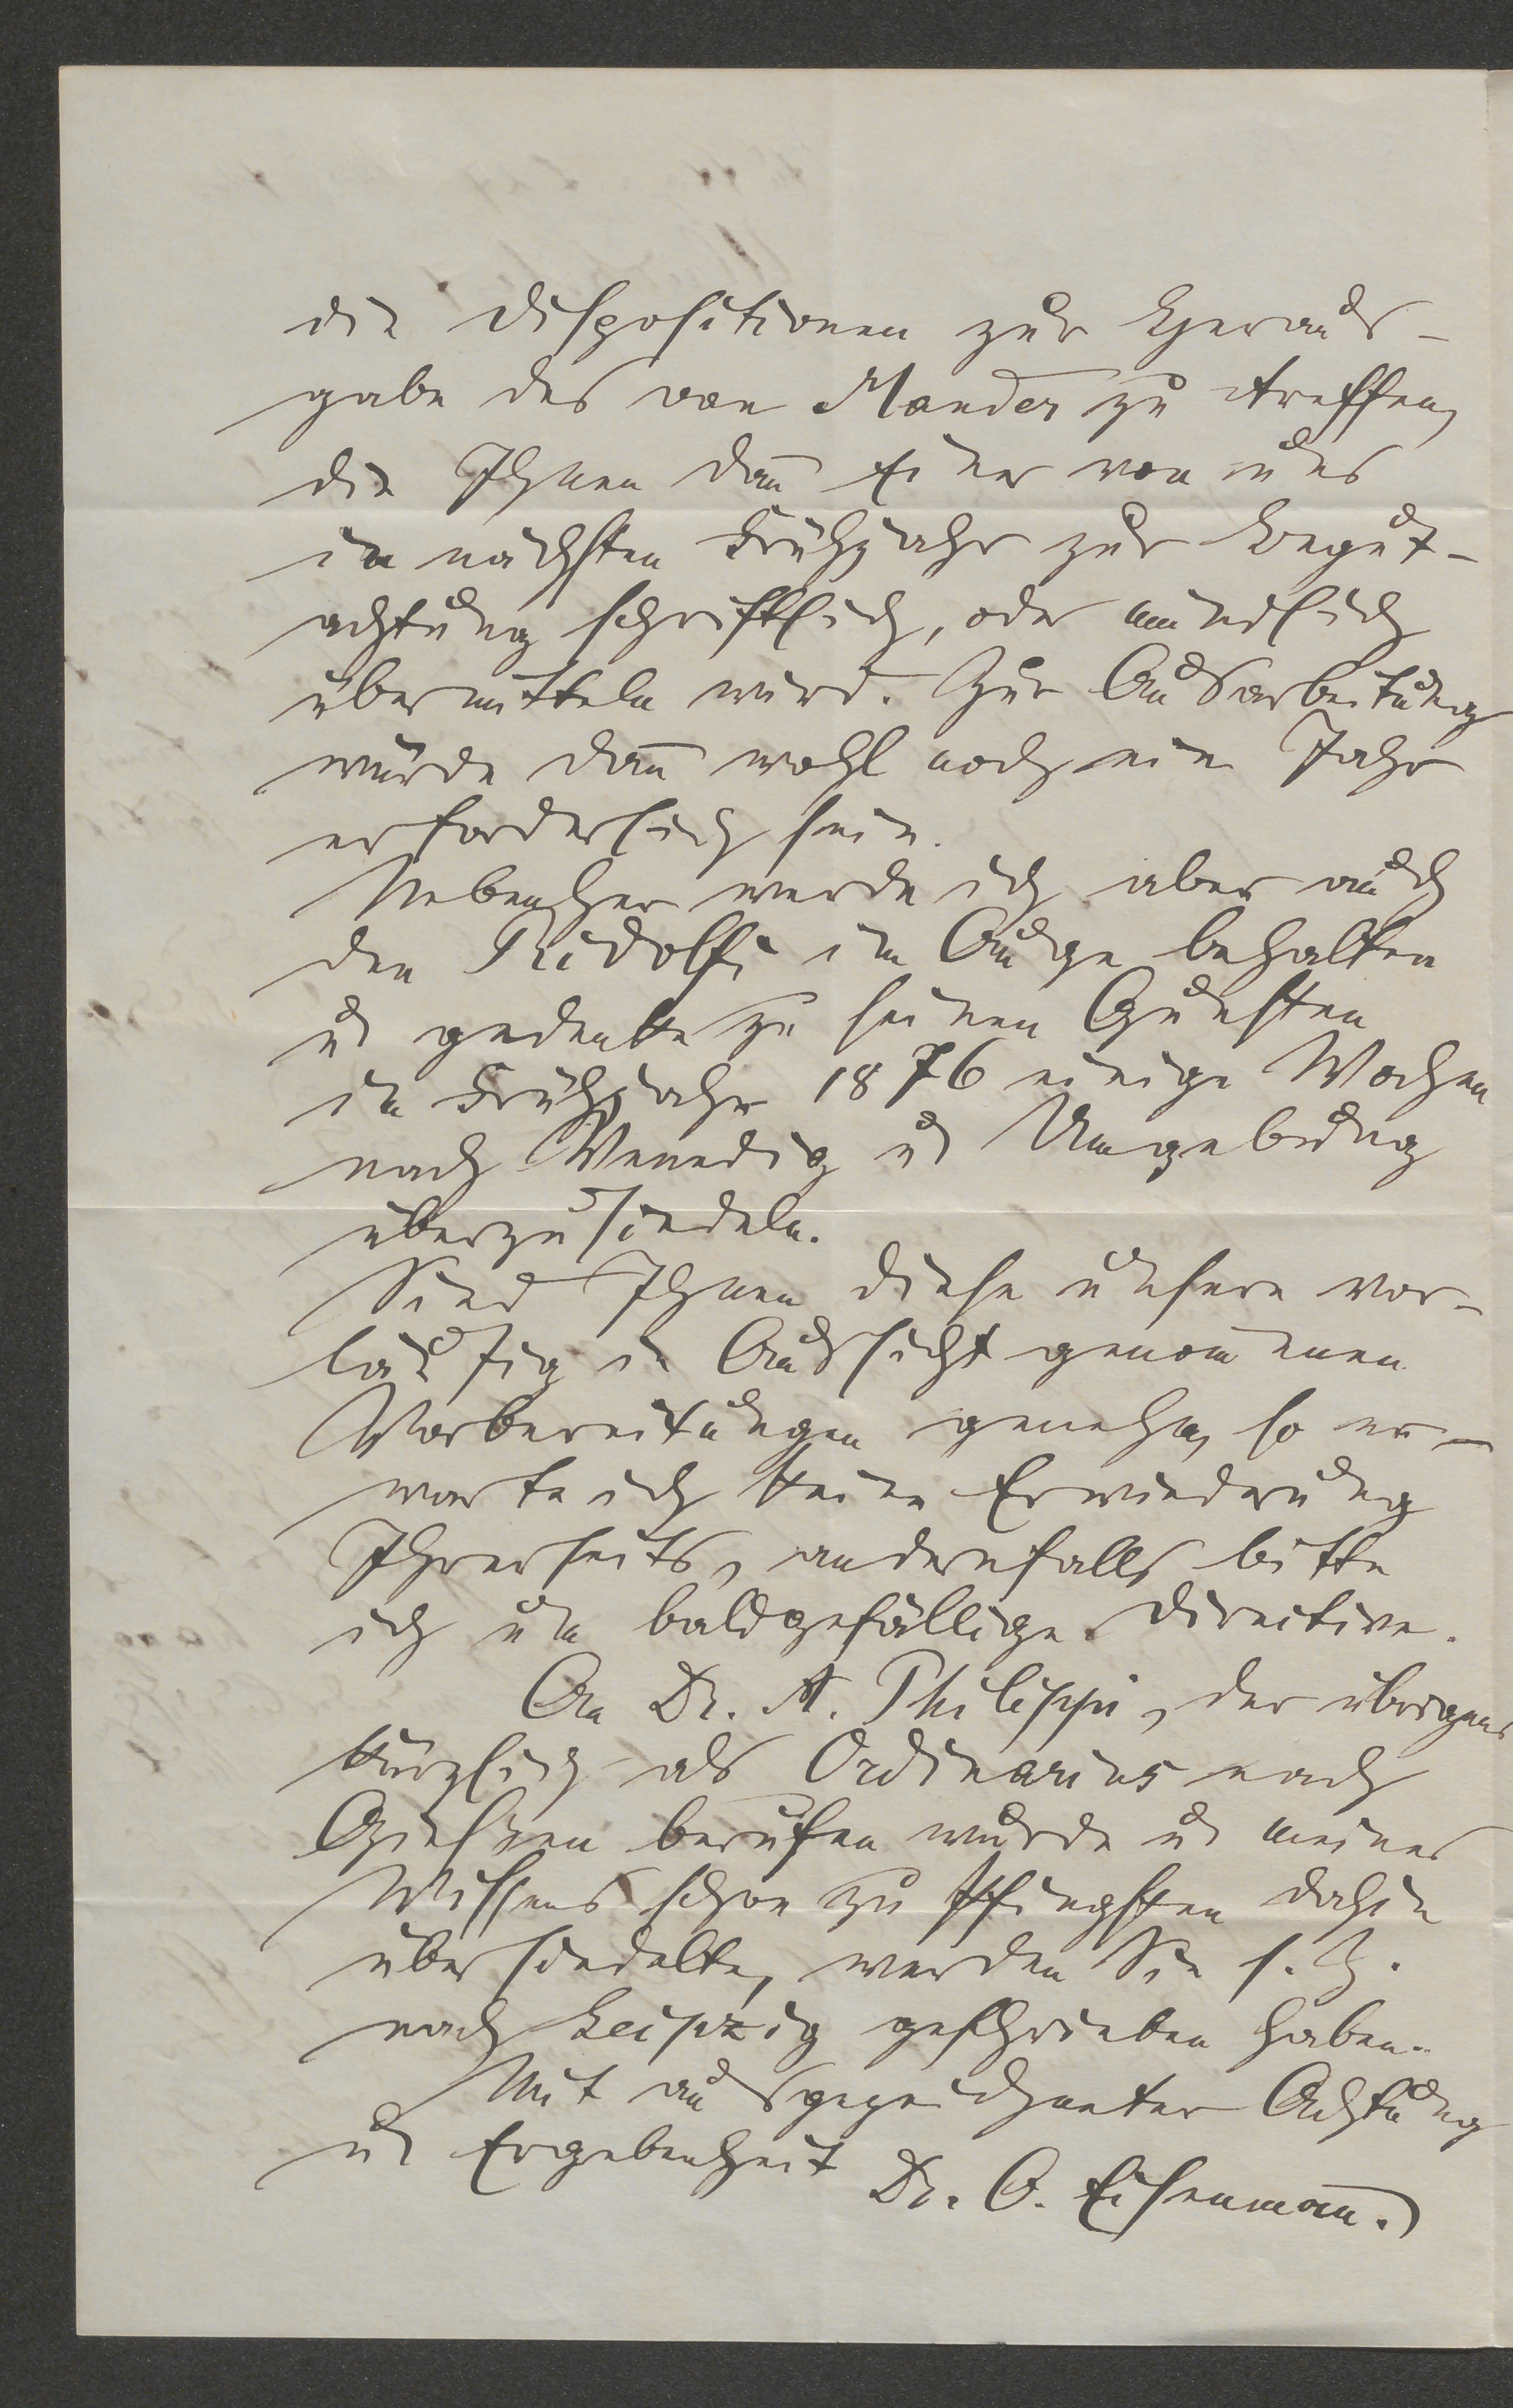 die Dispositionen zur Heraus-
gabe des van Mander zu treffen,
die Ihnen dañ Einer von uns
im nächsten Frühjahr zur Begut-
achtung schriftlich, oder mündlich
übermitteln wird. Zur Ausarbeitung
würde dañ wohl noch ein Jahr
erforderlich sein.
Nebenher werde ich aber auch
den Ridolfi im Auge behalten
u gedenke zu seinen Gunsten
im Frühjahr 1876 einige Wochen
nach Venedig u Umgebung
überzusiedeln.
Sind Ihnen diese unsere vor-
läufig in Aussicht genom̃enen
Vorbereitungen genehm, so er-
warte ich keine Erwiederung
Ihrerseits, andernfalls bitte
ich um baldgefällige Direktive.
An Dr. A. Philippi, der übrigens
kürzlich als Ordinarius nach
Giessen berufen wurde u meines
Wissens schon zu Pfingsten dahin
übersiedelte, werden Sie s. Z.
nach Leipzig geschrieben haben.
Mit ausgezeichneter Achtung
u Ergebenheit
Dr. O. Eisenmañ.